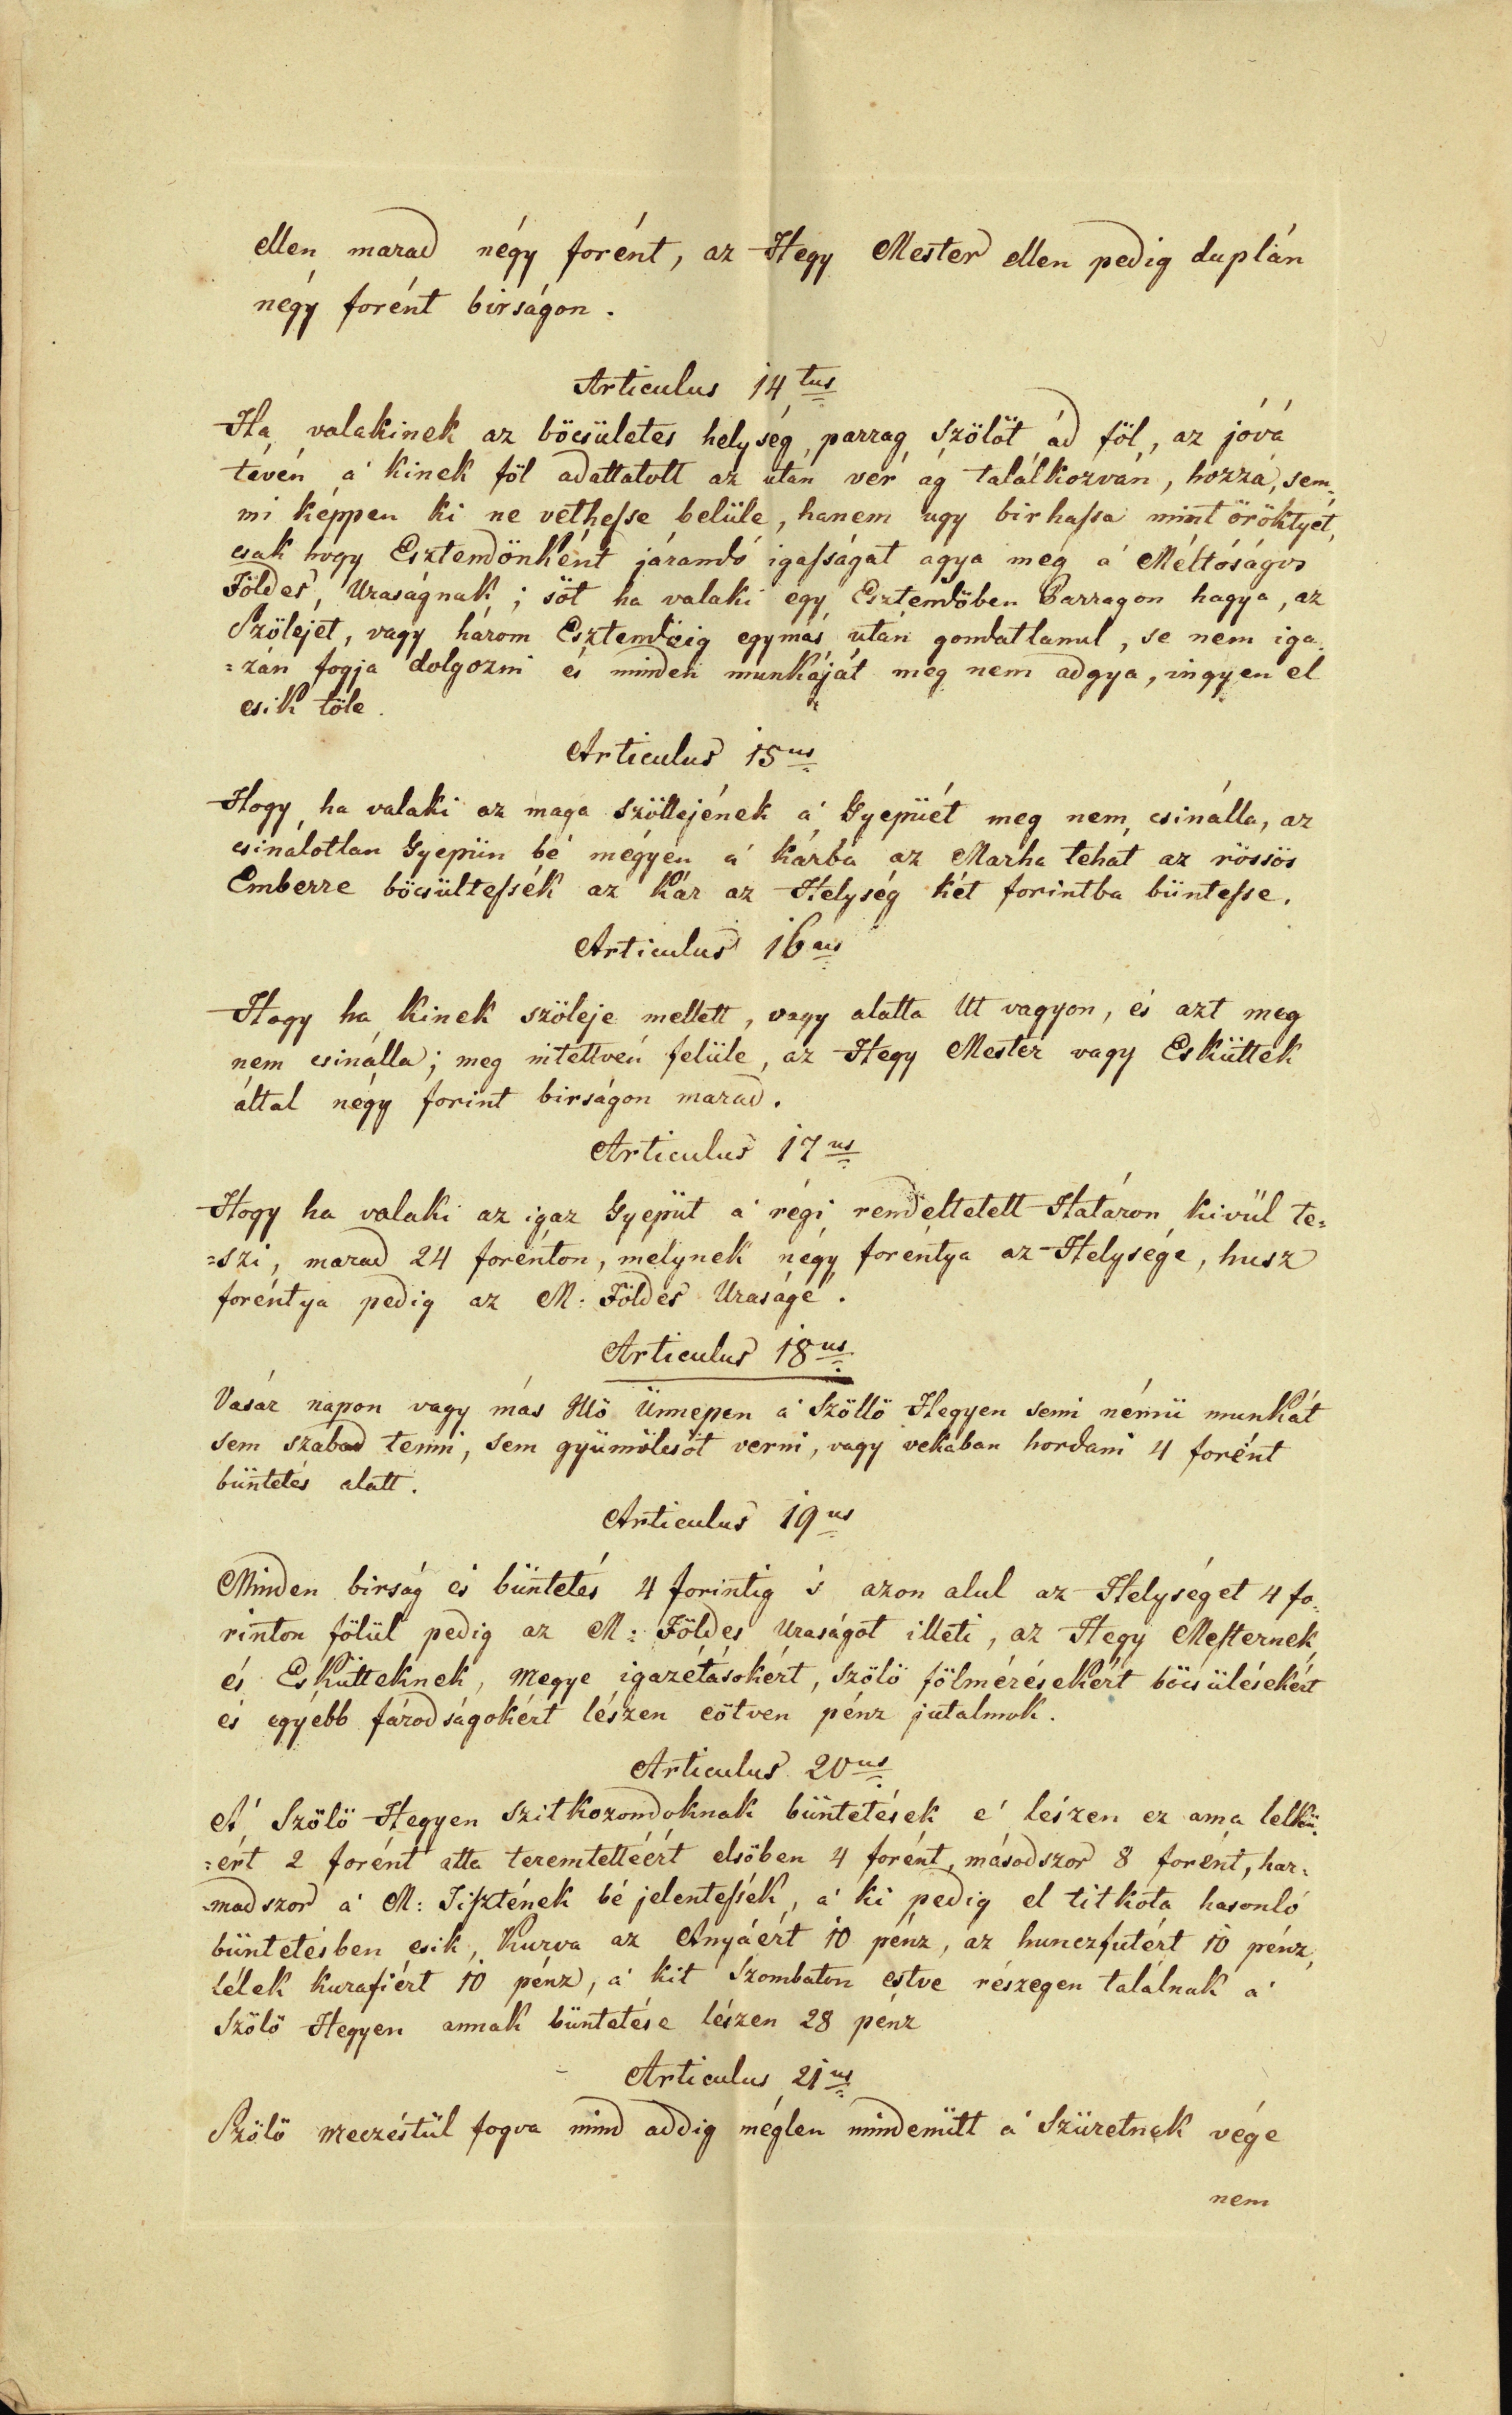 ellen marad négy forént, az Hegy Mester ellen pedig duplán
négy forént birságon.
Articulus 14tus
Ha valakinek az böcsületes helység, parrag Szölöt ád föl, az jóvá
tévén á kinek föl adattatott az után vér ág találkozván, hozzá, sem=
mi képpen ki ne vethesse belüle, hanem ugy birhassa mint öröktyét,
csak hogy Esztendönként járandó igasságát agya meg á Méltóságos
Földes Uraságnak; söt ha valaki egy Esztendöben Parragon hagya, az
Szölejét, vagy három Esztendöig egymás után gondatlanul, se nem iga=
=zán fogja dolgozni és minden munkáját meg nem adgya, ingyen el
esik töle.
Articulus 15us
Hogy ha valaki az maga Szöllejének á Gyepüét meg nem csinálla, az
csinálotlan Gyepün bé mégyen á kárba az Marha tehát az rössös
Emberre böcsültessék az kár az Helység két forintba büntesse.
Articulus 16us
Hogy ha kinek szöleje mellett, vagy alatta Ut vagyon, és azt meg
nem csinálla; meg intettvén felüle, az Hegy Mester vagy Esküttek
által négy forint birságon marad.
Articulus 17us
Hogy ha valaki az igaz Gyepüt á régi rendeltetett Határon kivül te=
=szi, marad 24 forénton, melynek négy foréntya az Helysége, husz
foréntya pedig az M: Földes Uraságé.
Articulus 18us
Vasár napon vagy más Ülö Ünnepen á Szöllö Hegyen semi némü munkát
sem szabad tenni, sem gyümölcsöt verni, vagy vekában hordani 4 forént
büntetés alatt.
Articulus 19us
Minden birság és büntetés 4 forintig s azon alul az Helységet 4 fo=
rinton fölül pedig az M: Földes Uraságot illeti, az Hegy Mesternek
és Eskütteknek, Megye igazétásokért, Szölö fölmérésekért böcsülésekért
és egyébb fárodságokért lészen eötven pénz jutalmok.
Articulus 20us
A' Szölö Hegyen Szitkozondoknak büntetések e' lészen ez ama lelkü=
=ért 2 forént atta teremtettéért elsöben 4 forént, másodszor 8 forént, har=
=madszor á M: Tisztének bé jelentessék, á ki pedig el titkóta hasonló
büntetésben esik, Kurva az Anyáért 10 pénz, az hunczfutért 10 pénz,
Lélek kurafiért 10 pénz, á kit Szombaton estve részegen találnak á
Szölö Hegyen annak büntetése lészen 28 pénz
Articulus 21us
Szölö meczéstül fogva mind addig méglen mindenütt á Szüretnek vége
nem